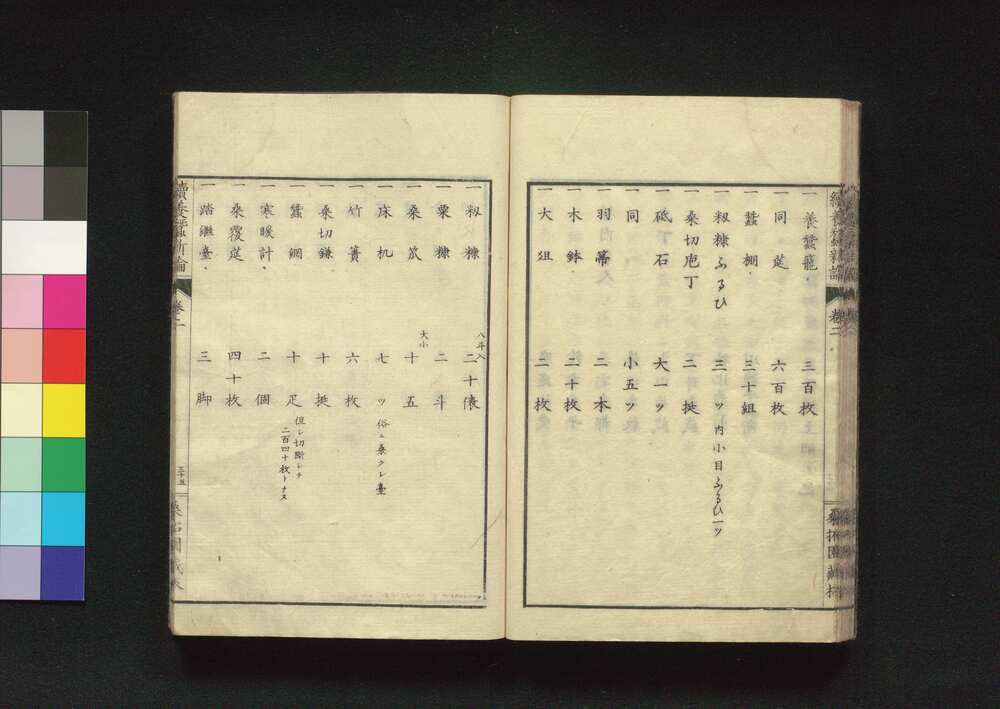 一 養蚕籠 三百枚
一 同莚 六百枚
一 蠶棚 三十組
一 籾糠ふるひ 三ッ 内小目ふるひ一ッ
一 桑切庖丁 二挺
一 砥石 大一ッ
一 同 小五ッ
一 羽箒 二本
一 木鉢 二十枚
一 大俎 二枚
一 籾糠 八斗入 二十俵
一 粟糠 二斗
一 桑笊 大小 十五
一 床机 七ッ 俗ニ桑クレ臺
一 竹簀 六枚
一 桑切鎌 十挺
一 蠶網 十疋 但シ切断シテ二百四十枚トナス
一 寒暖計 二個
一 桑覆莚 四十枚
一 踏継臺 三脚
續養蠶新論 卷二